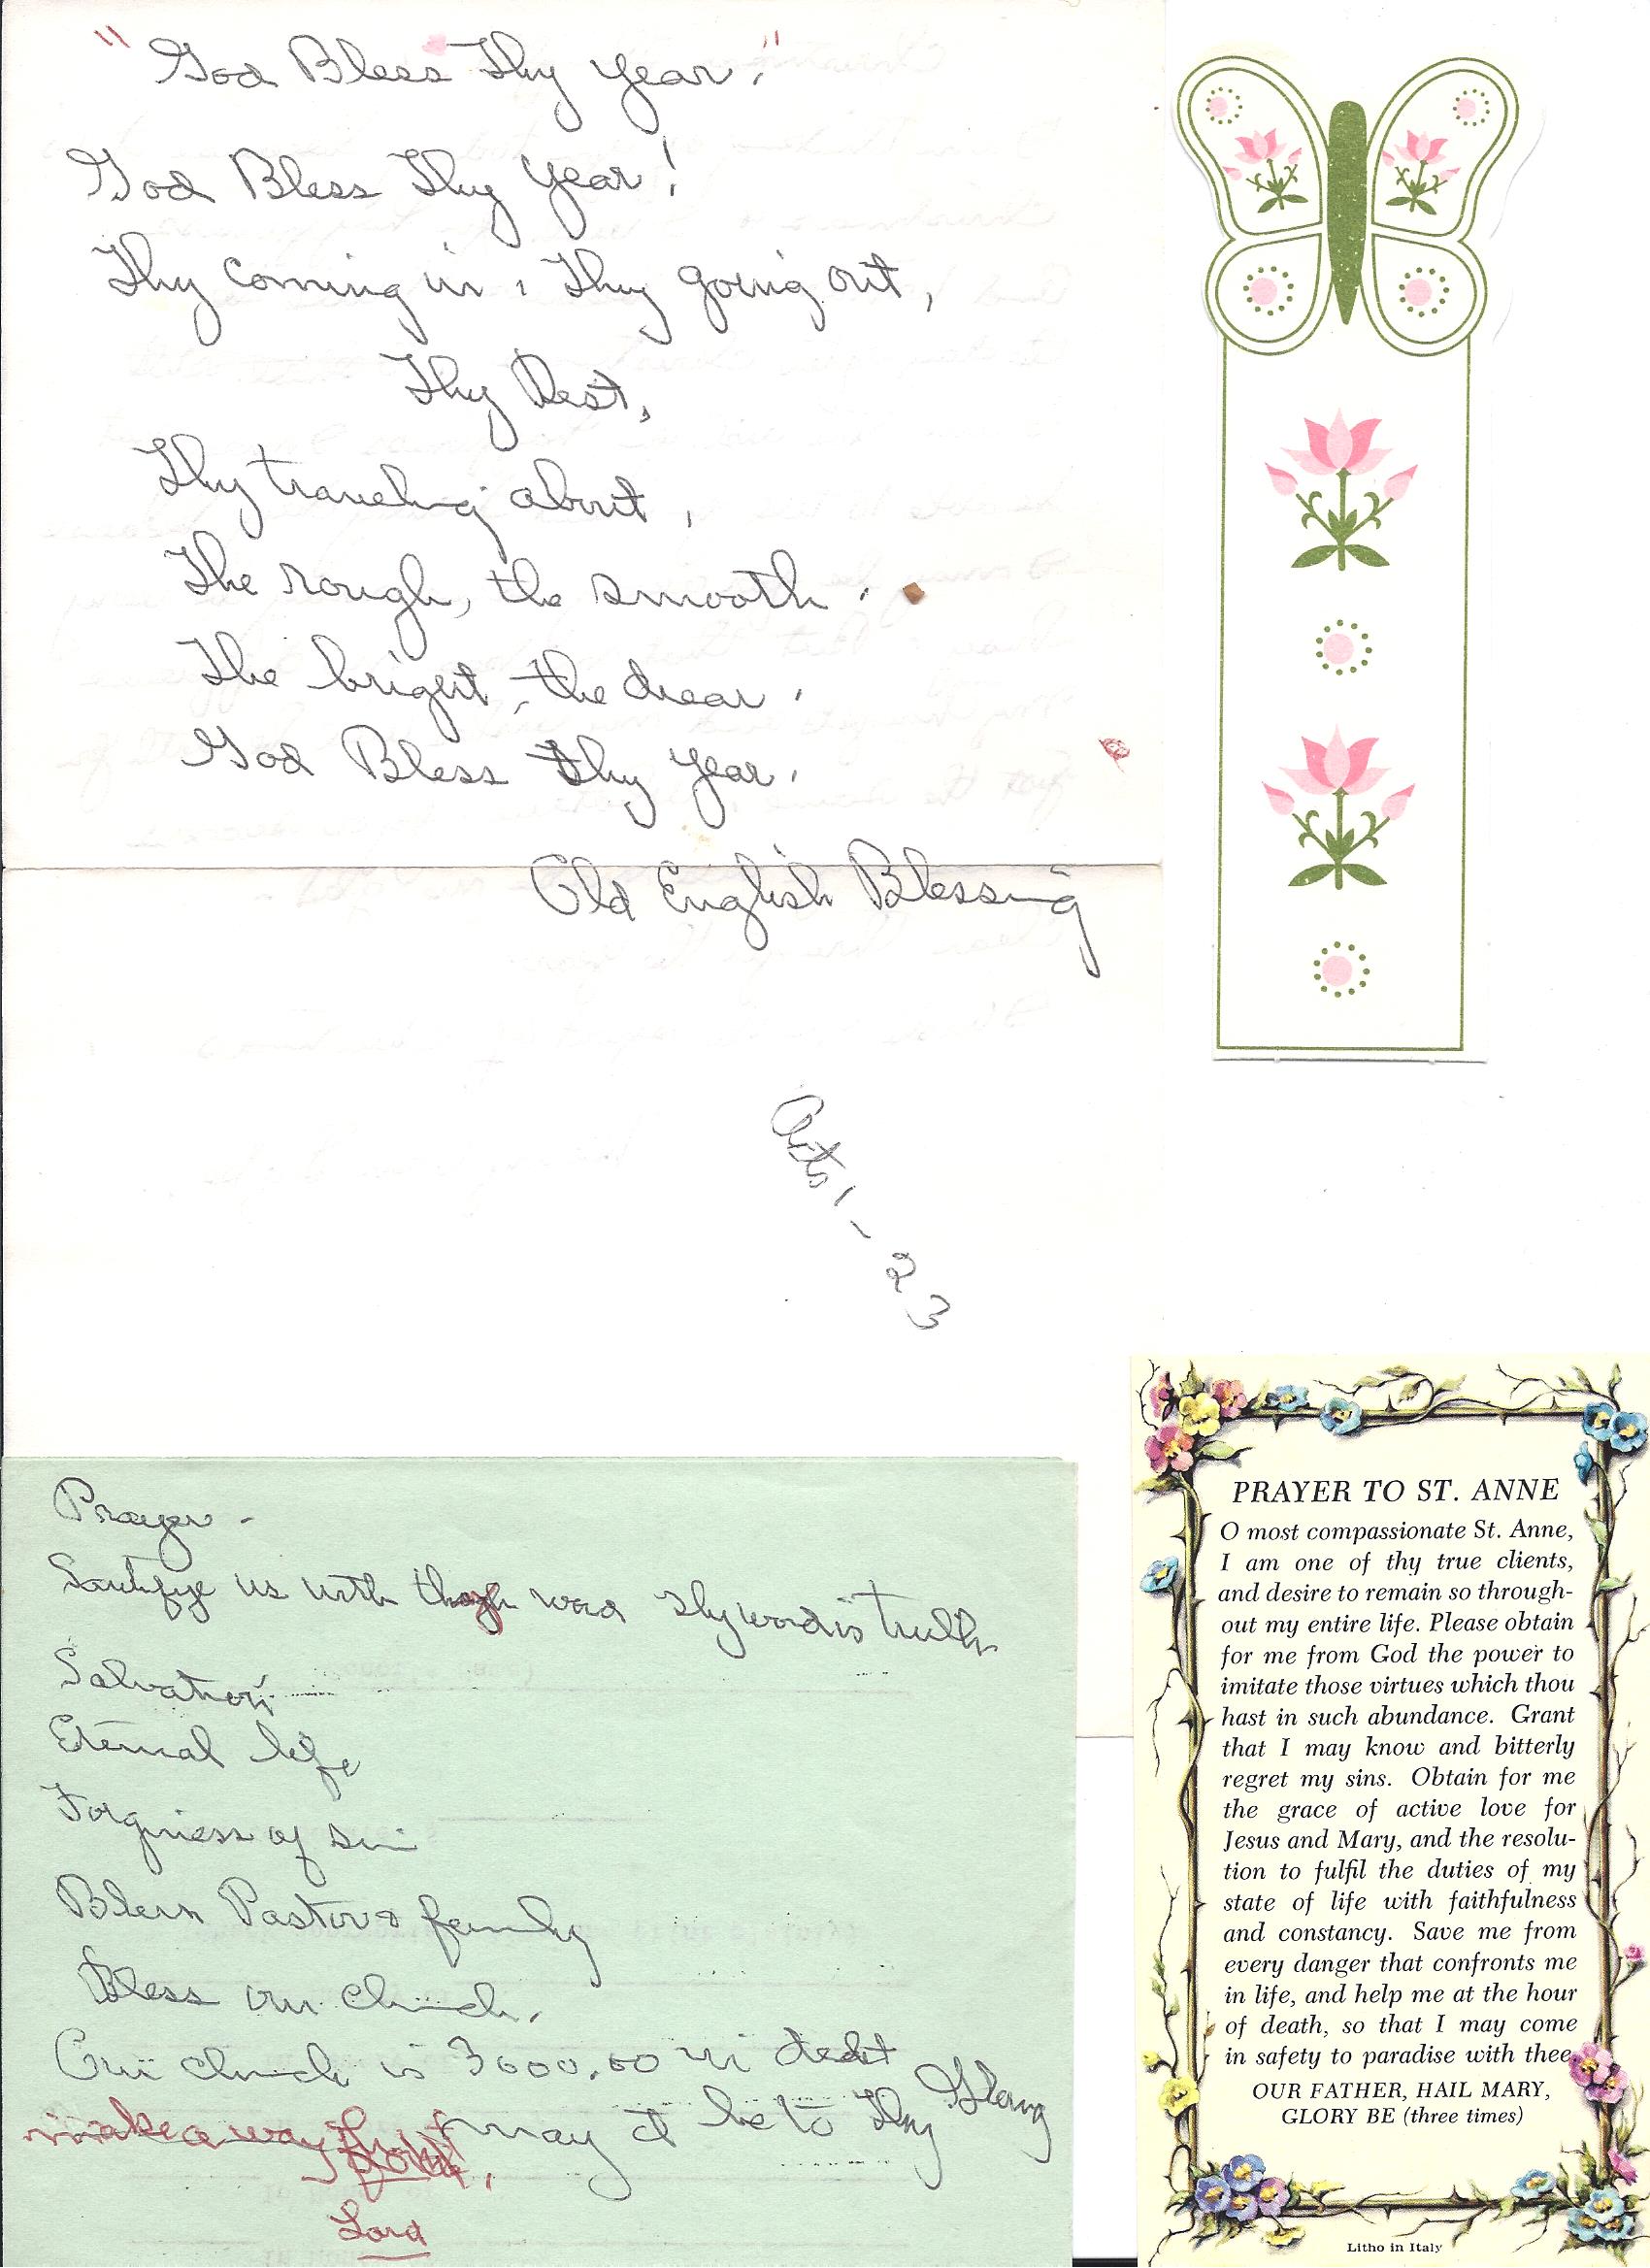 "God Bless Thy Year."
God Bless Thy Year!
Thy coming in, Thy going out,
Thy Rest,
Thy traveling about,
The rough, the smooth.
The brigert, the drear.
God Bless thy year.
Old English Blessing
Acts 1 - 23
Prayer -
us with word thy word is truth
Salvation
Eternal life
Forginess of sin
Bless Pastor & family
Bless our church.
Our church is 3000.00 in debt
make a way may it be to Thy Glory
Lord
PRAYER TO ST. ANNE
O most compassionate St. Anne,
I am one of thy true clients,
and desire to remain so through-
out my entire life. Please obtain
for me from God the power to
imitate those virtues which thou
hast in such abundance. Grant
that I may know and bitterly
regret my sins. Obtain for me
the grace of active love for
Jesus and Mary, and the resolu-
tion to fulfil the duties of my
state of life with faithfulness
and constancy. Save me from
every danger that confronts me
in life, and help me at the hour
of death, so that I may come
in safety to paradise with thee.
OUR FATHER, HAIL MARY,
GLORY BE (three times)
Litho in Italy